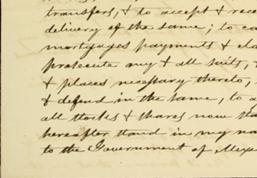 transfers, & to accept & rece
delivery of the same; to co
mortgages payments & cla
prosecute my & all suits,
& places necessary thereto,
& defend in the same, to a
all stocks & shares now sta
hereafter stand in my na
to the Government of Mexi